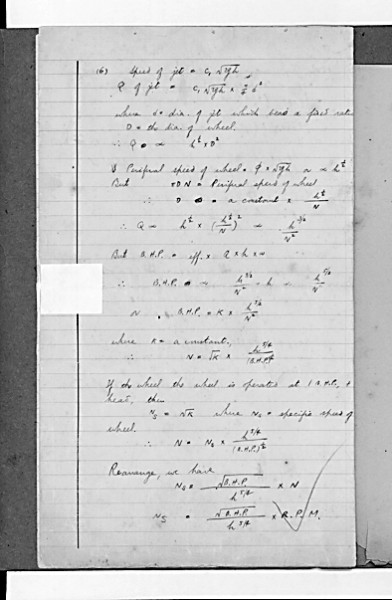 (6) Speed of jet = c₁ √2gh
Q of jet = c₁ √2gh × π/4 d²
where d = dia. of jet which bears a fixed ratio
D = the dia. of wheel.
∴ Q ∝ h^½ × D²
Peripheral speed of wheel = φ × √2gh ∝ h^½
But πDN = Peripheral speed of wheel
∴ D = a constant × h^½/N
∴ Q ∝ h^½ × (h^½/N)² ∝ h^3/2/N²
But B.H.P. = eff. × Q × h × w
∴ B.H.P. ∝ h^3/2/N² × h ∝ h^5/2/N²
B.H.P. = K × h^5/2/N²
where K = a constant.
∴ N = √K × h^5/4/(B.H.P.)^½
If the wheel is operated at 1 B.H.P. +
head, then
Ns = √K where Ns = specific speed of
wheel.
∴ N = Ns × h^5/4/(B.H.P.)^½
Rearrange, we have
Ns = √B.H.P./h^5/4 × N
Ns = √B.H.P./h^5/4 × R.P.M.